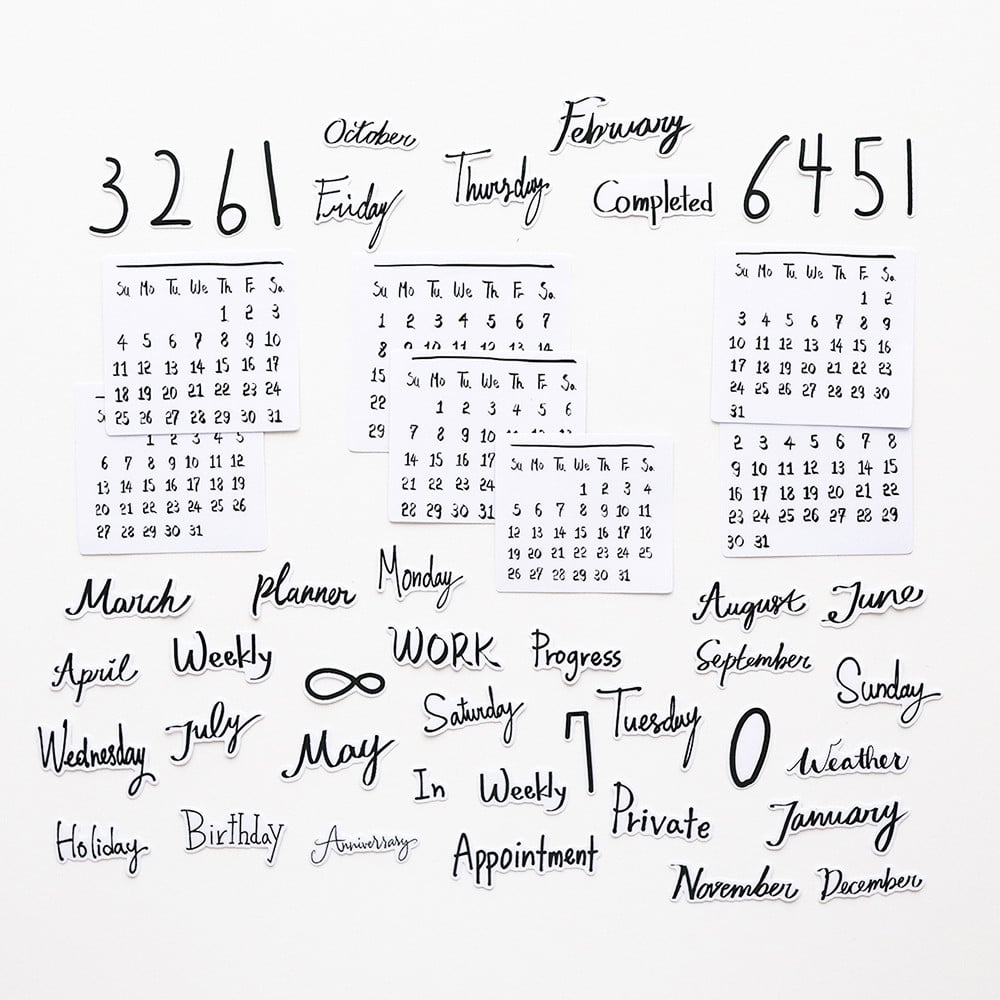 October
February
3 2 6 1
Friday
Thursday
Completed
6 4 5 1
Su Mo Tu We Th Fr Sa
1 2 3
4 5 6 7 8 9 10
11 12 13 14 15 16 17
18 19 20 21 22 23 24
25 26 27 28 29 30 31
1 2 3 4 5
6 7 8 9 10 11 12
13 14 15 16 17 18 19
20 21 22 23 24 25 26
27 28 29 30 31
Su Mo Tu We Th Fr Sa
1 2 3 4 5 6 7
8 9 10 11 12 13 14
15
22
29
Su Mo Tu We Th Fr Sa
1 2 3 4 5 6
7 8 9 10
14 15 16 17
21 22 23 24
28 29 30 31
Su Mo Tu We Th Fr Sa
1 2 3 4
5 6 7 8 9 10 11
12 13 14 15 16 17 18
19 20 21 22 23 24 25
26 27 28 29 30 31
Su Mo Tu We Th Fr Sa
1 2
3 4 5 6 7 8 9
10 11 12 13 14 15 16
17 18 19 20 21 22 23
24 25 26 27 28 29 30
31
2 3 4 5 6 7 8
9 10 11 12 13 14 15
16 17 18 19 20 21 22
23 24 25 26 27 28 29
30 31
March
Planner
Monday
August
June
April
Weekly
WORK
Progress
September
Sunday
8
Wednesday
July
May
Saturday
7
Tuesday
0
Weather
In
Weekly
Private
January
Holiday
Birthday
Anniversary
Appointment
November
December